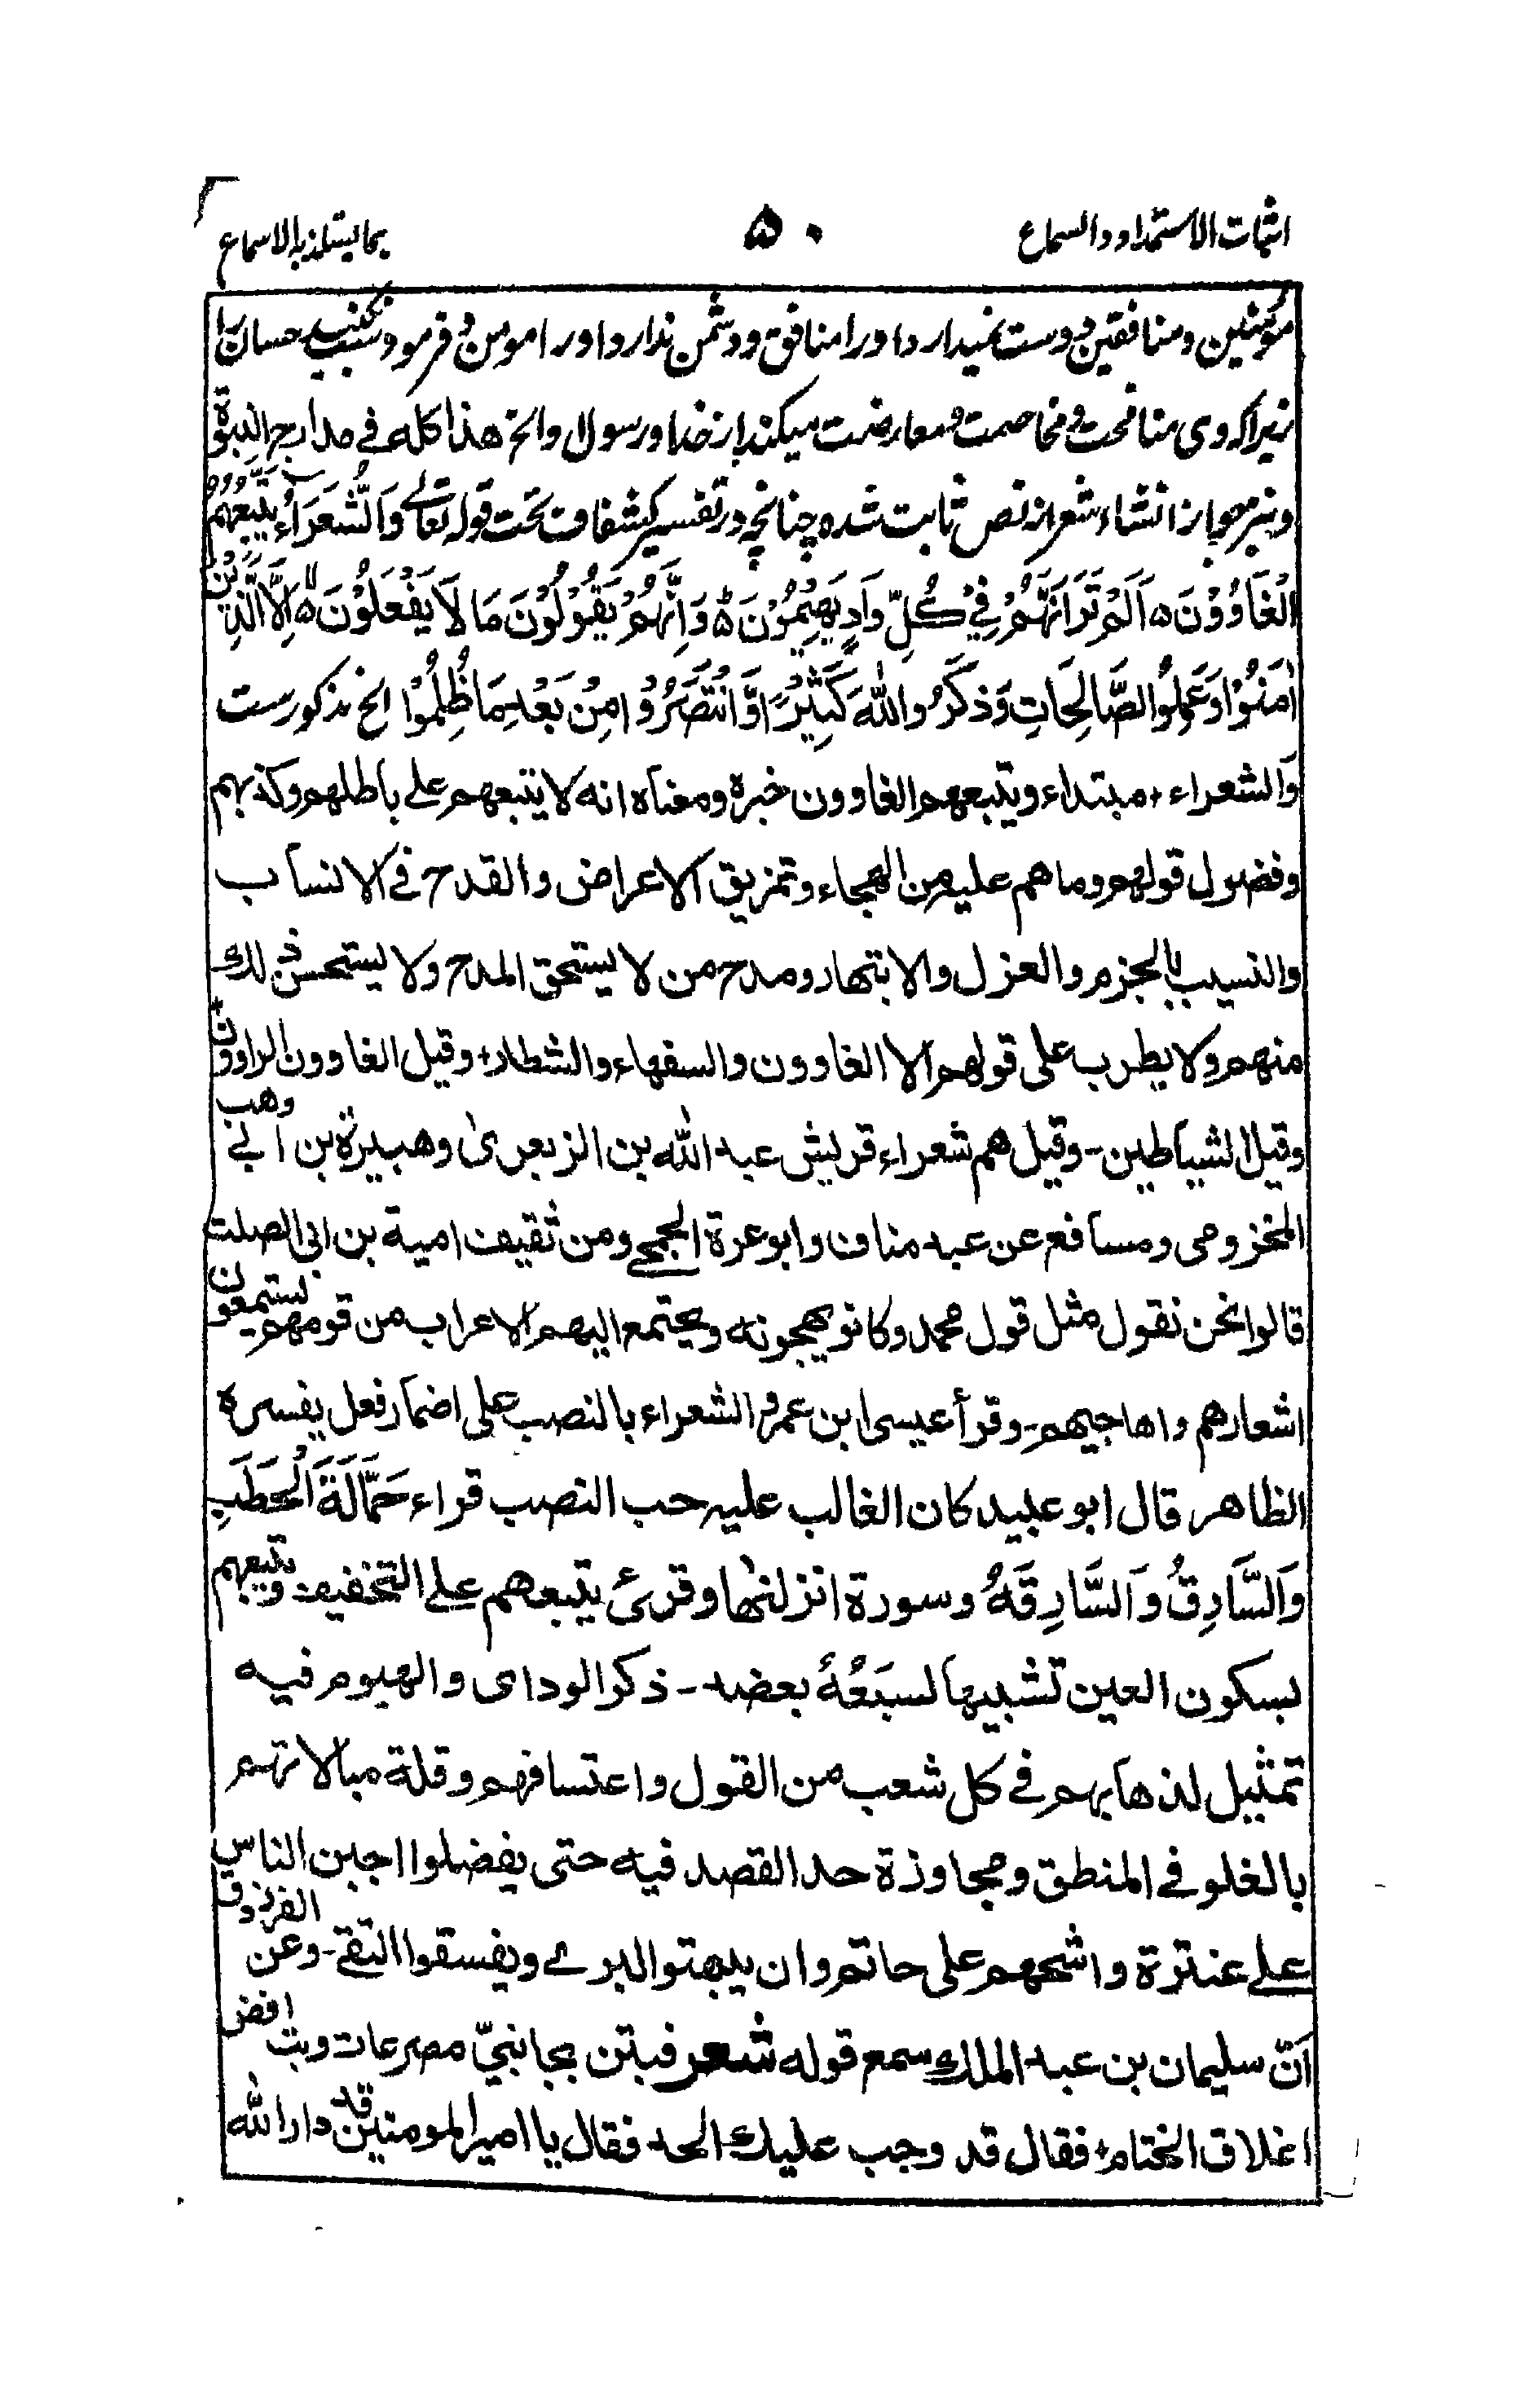 اثبات الاستمداد والسماع ۵۰ بما یستلذ به الاسماع
مؤمنین ومنافقین دوست نمیدارد اورا منافق ودشمن ندارد اورا مومن و فرمود سب نکنید حسان را
زیراکه وی منافحت و مخاصمت و معارضت میکند از خدا ورسول او الخ هذا کله فی مدارج النبوة
ونیز جواز انشاء شعر از نص ثابت شده چنانچه در تفسیر کشفاف تحت قوله تعالے وَالشُّعَرَاءُ یَتَّبِعُهُمُ
الْغَاوٗوْنَ ۵ اَلَمْ تَرَ اَنَّهُمْ فِیْ کُلِّ وَادٍ یَّهِیْمُوْنَ ۵ وَاِنَّهُمْ یَقُوْلُوْنَ مَا لَا یَفْعَلُوْنَ ۵ اِلَّا الَّذِیْنَ
اٰمَنُوْا وَعَمِلُوا الصَّالِحَاتِ وَذَکَرُوا اللّٰهَ کَثِیْرًا وَّانْتَصَرُوْا مِنْ بَعْدِ مَا ظُلِمُوْا الخ مذکورست
وَالشعراء، مبتداء ویتبعهم الغاوون خبره ومعناه انه لا یتبعهم علی باطلهم وکذبهم
وفضول قولهم وما هم علیه من الهجاء وتمزیق الاعراض والقدح فی الانساب
والنسیب بالجزم والعزل والابتهار ومدح من لا یستحق المدح ولا یستحسن ذلك
منهم ولا یطرب علی قولهم الا الغاوون والسفهاء والشطار، وقیل الغاوون الراوون
وقیل الشیاطین۔ وقیل هم شعراء قریش عبد الله بن الزبعری وهبیرة بن ابی وهب
المخزومی ومسافع عن عبد مناف وابو عزة الجمحی ومن ثقیف امیة بن ابی الصلت
قالوا نحن نقول مثل قول محمد وکانو یهجونه ویجتمع الیهم الاعراب من قومهم یستمعون
اشعارهم واهاجیهم۔ وقرأ عیسی ابن عمر والشعراء بالنصب علی اضمار فعل یفسره
الظاهر قال ابو عبید کان الغالب علیه حب النصب قراء حَمَّالَةَ الْحَطَبِ
وَالسَّارِقُ وَالسَّارِقَهُ وسورة انزلنٰها وقرئ یتبعهم علے التخفیف ویتبعهم
بسکون العین تشبیها لسبَعُهُ بعضد۔ ذکر الوادی والهیوم فیه
تمثیل لذهابهم فی کل شعب من القول واعتسافهم وقلة مبالاتهم
بالغلو فی المنطق ومجاوزة حد القصد فیه حتی یفضلوا اجبن الناس
علے عنترة واشحهم علی حاتم وان یبهتوا البرے ویفسقوا التقی۔ وعن الفرزدق
اَنّ سلیمان بن عبد الملك سمع قوله شعر فبتن بجانبیّ مصرعات وبت افض
اغلاق الختام، فقال قد وجب علیك الحد فقال یا امیر المومنین قد دارا لله